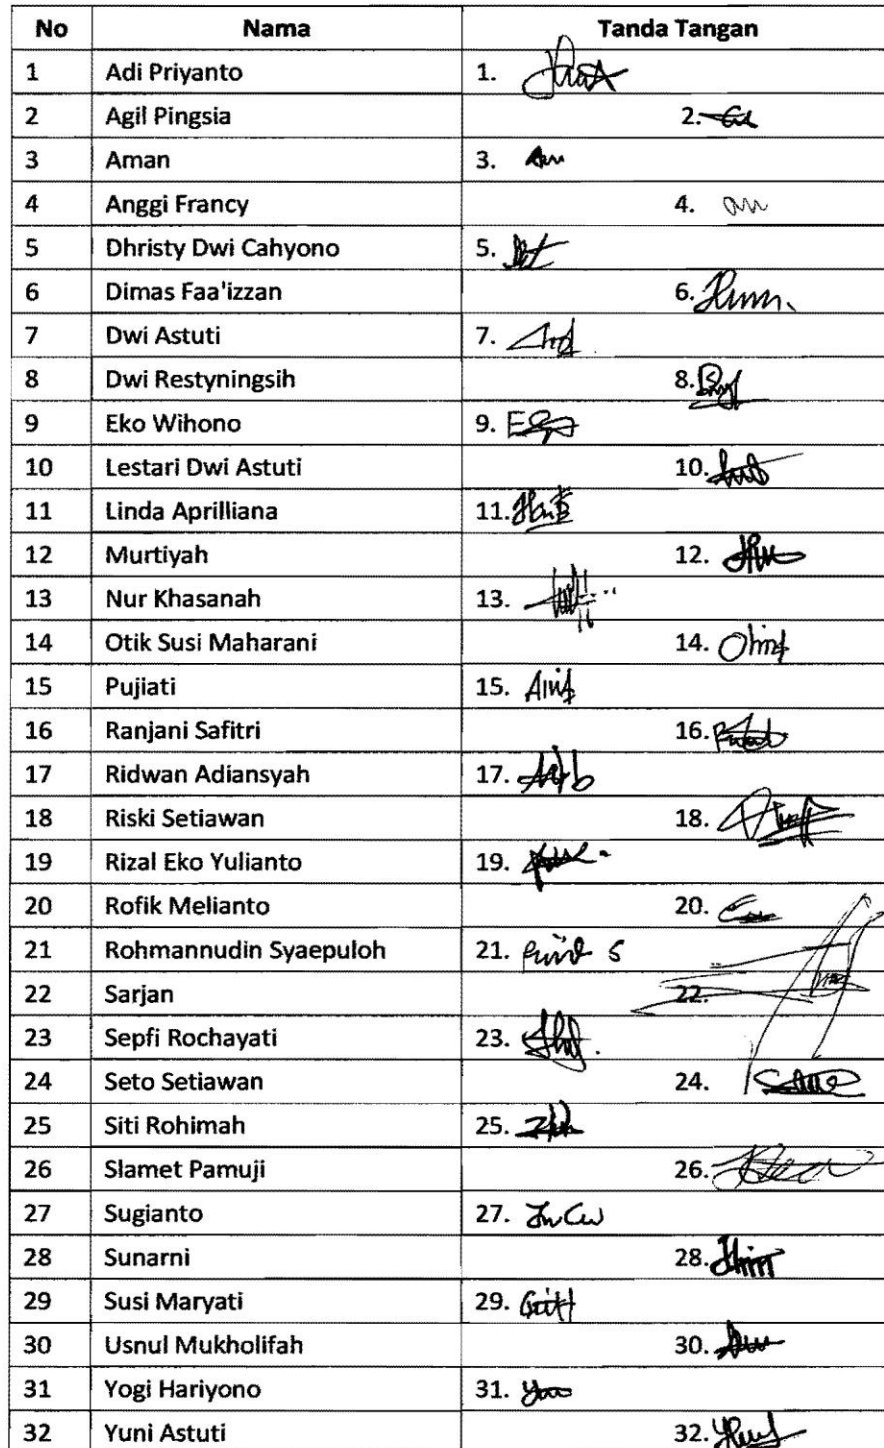 No Nama Tanda Tangan
1 Adi Priyanto 1.
2 Agil Pingsia 2.
3 Aman 3.
4 Anggi Francy 4.
5 Dhristy Dwi Cahyono 5.
6 Dimas Faa'izzan 6.
7 Dwi Astuti 7.
8 Dwi Restyningsih 8.
9 Eko Wihono 9.
10 Lestari Dwi Astuti 10.
11 Linda Aprilliana 11.
12 Murtiyah 12.
13 Nur Khasanah 13.
14 Otik Susi Maharani 14.
15 Pujiati 15.
16 Ranjani Safitri 16.
17 Ridwan Adiansyah 17.
18 Riski Setiawan 18.
19 Rizal Eko Yulianto 19.
20 Rofik Melianto 20.
21 Rohmannudin Syaepuloh 21.
22 Sarjan 22.
23 Sepfi Rochayati 23.
24 Seto Setiawan 24.
25 Siti Rohimah 25.
26 Slamet Pamuji 26.
27 Sugianto 27.
28 Sunarni 28.
29 Susi Maryati 29.
30 Usnul Mukholifah 30.
31 Yogi Hariyono 31.
32 Yuni Astuti 32.